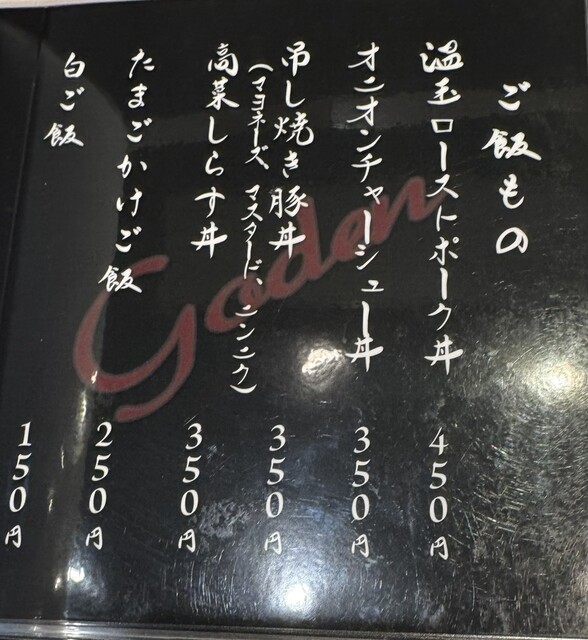 ご飯もの
温玉ローストポーク丼 450円
オニオンチャーシュー丼 350円
吊し焼き豚丼 350円
(マヨネーズ、マスタード、ニンニク)
高菜しらす丼 350円
たまごかけご飯 250円
白ご飯 150円
Goden